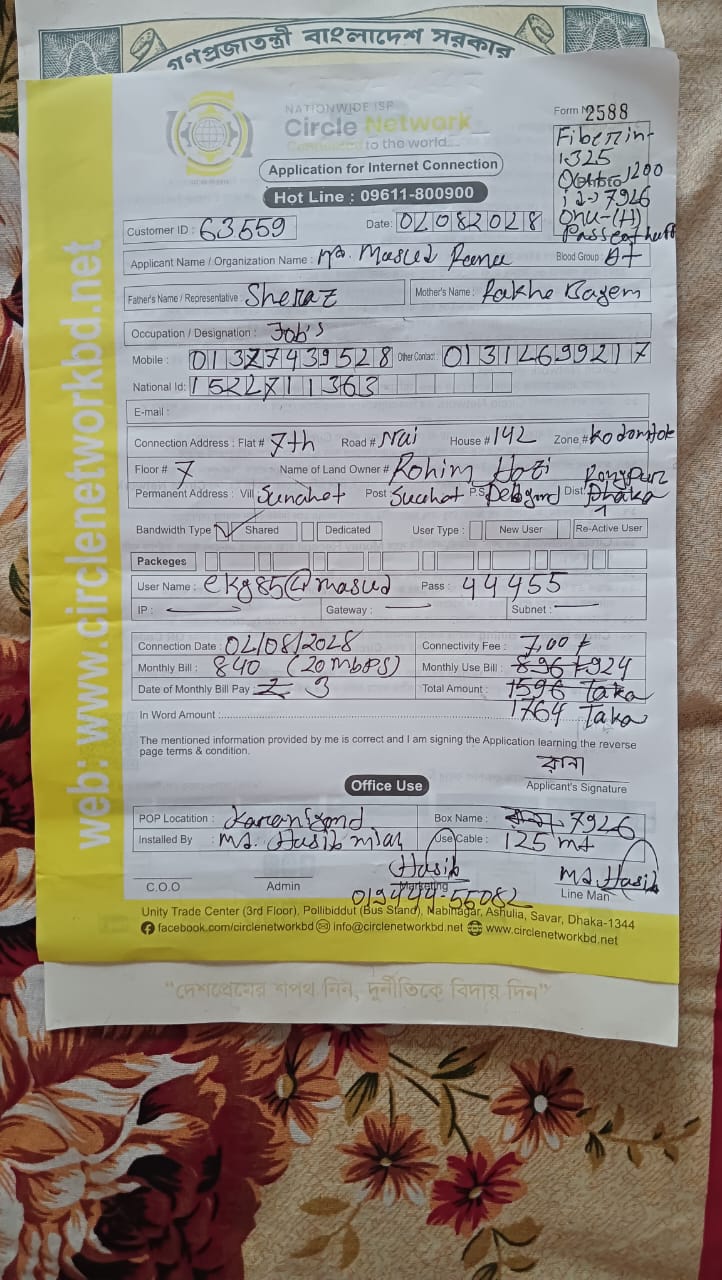 গণপ্রজাতন্ত্রী বাংলাদেশ সরকার
NATIONWIDE ISP
Circle Network
Connected to the world...
Form № 2588
Application for Internet Connection
Hot Line : 09611-800900
1325
1200
7926
Onu-(H)
Customer ID : 63559
Date: 02082028
Applicant Name / Organization Name : Md. Masud Rana
Blood Group : A+
Father's Name / Representative : Sheraz
Mother's Name : Rakhe Bagem
Occupation / Designation : Job's
Mobile : 01327439528 Other Contact : 01312699217
National Id: 1522711363
E-mail :
Connection Address : Flat # 7th Road # Nai House # 142 Zone #
Floor # 7 Name of Land Owner # Rohim Hazi
Permanent Address : Vill Sunahat Post Suahat P.S. Dist: Dhaka
Rongpur
Bandwidth Type Shared Dedicated User Type : New User Re-Active User
Packeges
User Name : ekg85@masud Pass : 44455
IP : Gateway : Subnet :
Connection Date : 02/08/2028 Connectivity Fee : 700
Monthly Bill : 840 (20 Mbps) Monthly Use Bill : 896 924
Date of Monthly Bill Pay 2 3 Total Amount : 1596 Taka
In Word Amount : 1764 Taka
The mentioned information provided by me is correct and I am signing the Application learning the reverse
page terms & condition.
রানা
Applicant's Signature
Office Use
POP Locatition : Box Name : 7926
Installed By : Md. Hasib miah Use Cable : 125 mt
Hasib Md. Hasib
C.O.O Admin Marketing Line Man
Unity Trade Center (3rd Floor), Pollibiddut (Bus Stand), Nabinagar, Ashulia, Savar, Dhaka-1344
facebook.com/circlenetworkbd info@circlenetworkbd.net www.circlenetworkbd.net
web: www.circlenetworkbd.net
"দেশপ্রেমের শপথ নিন, দুর্নীতিকে বিদায় দিন"